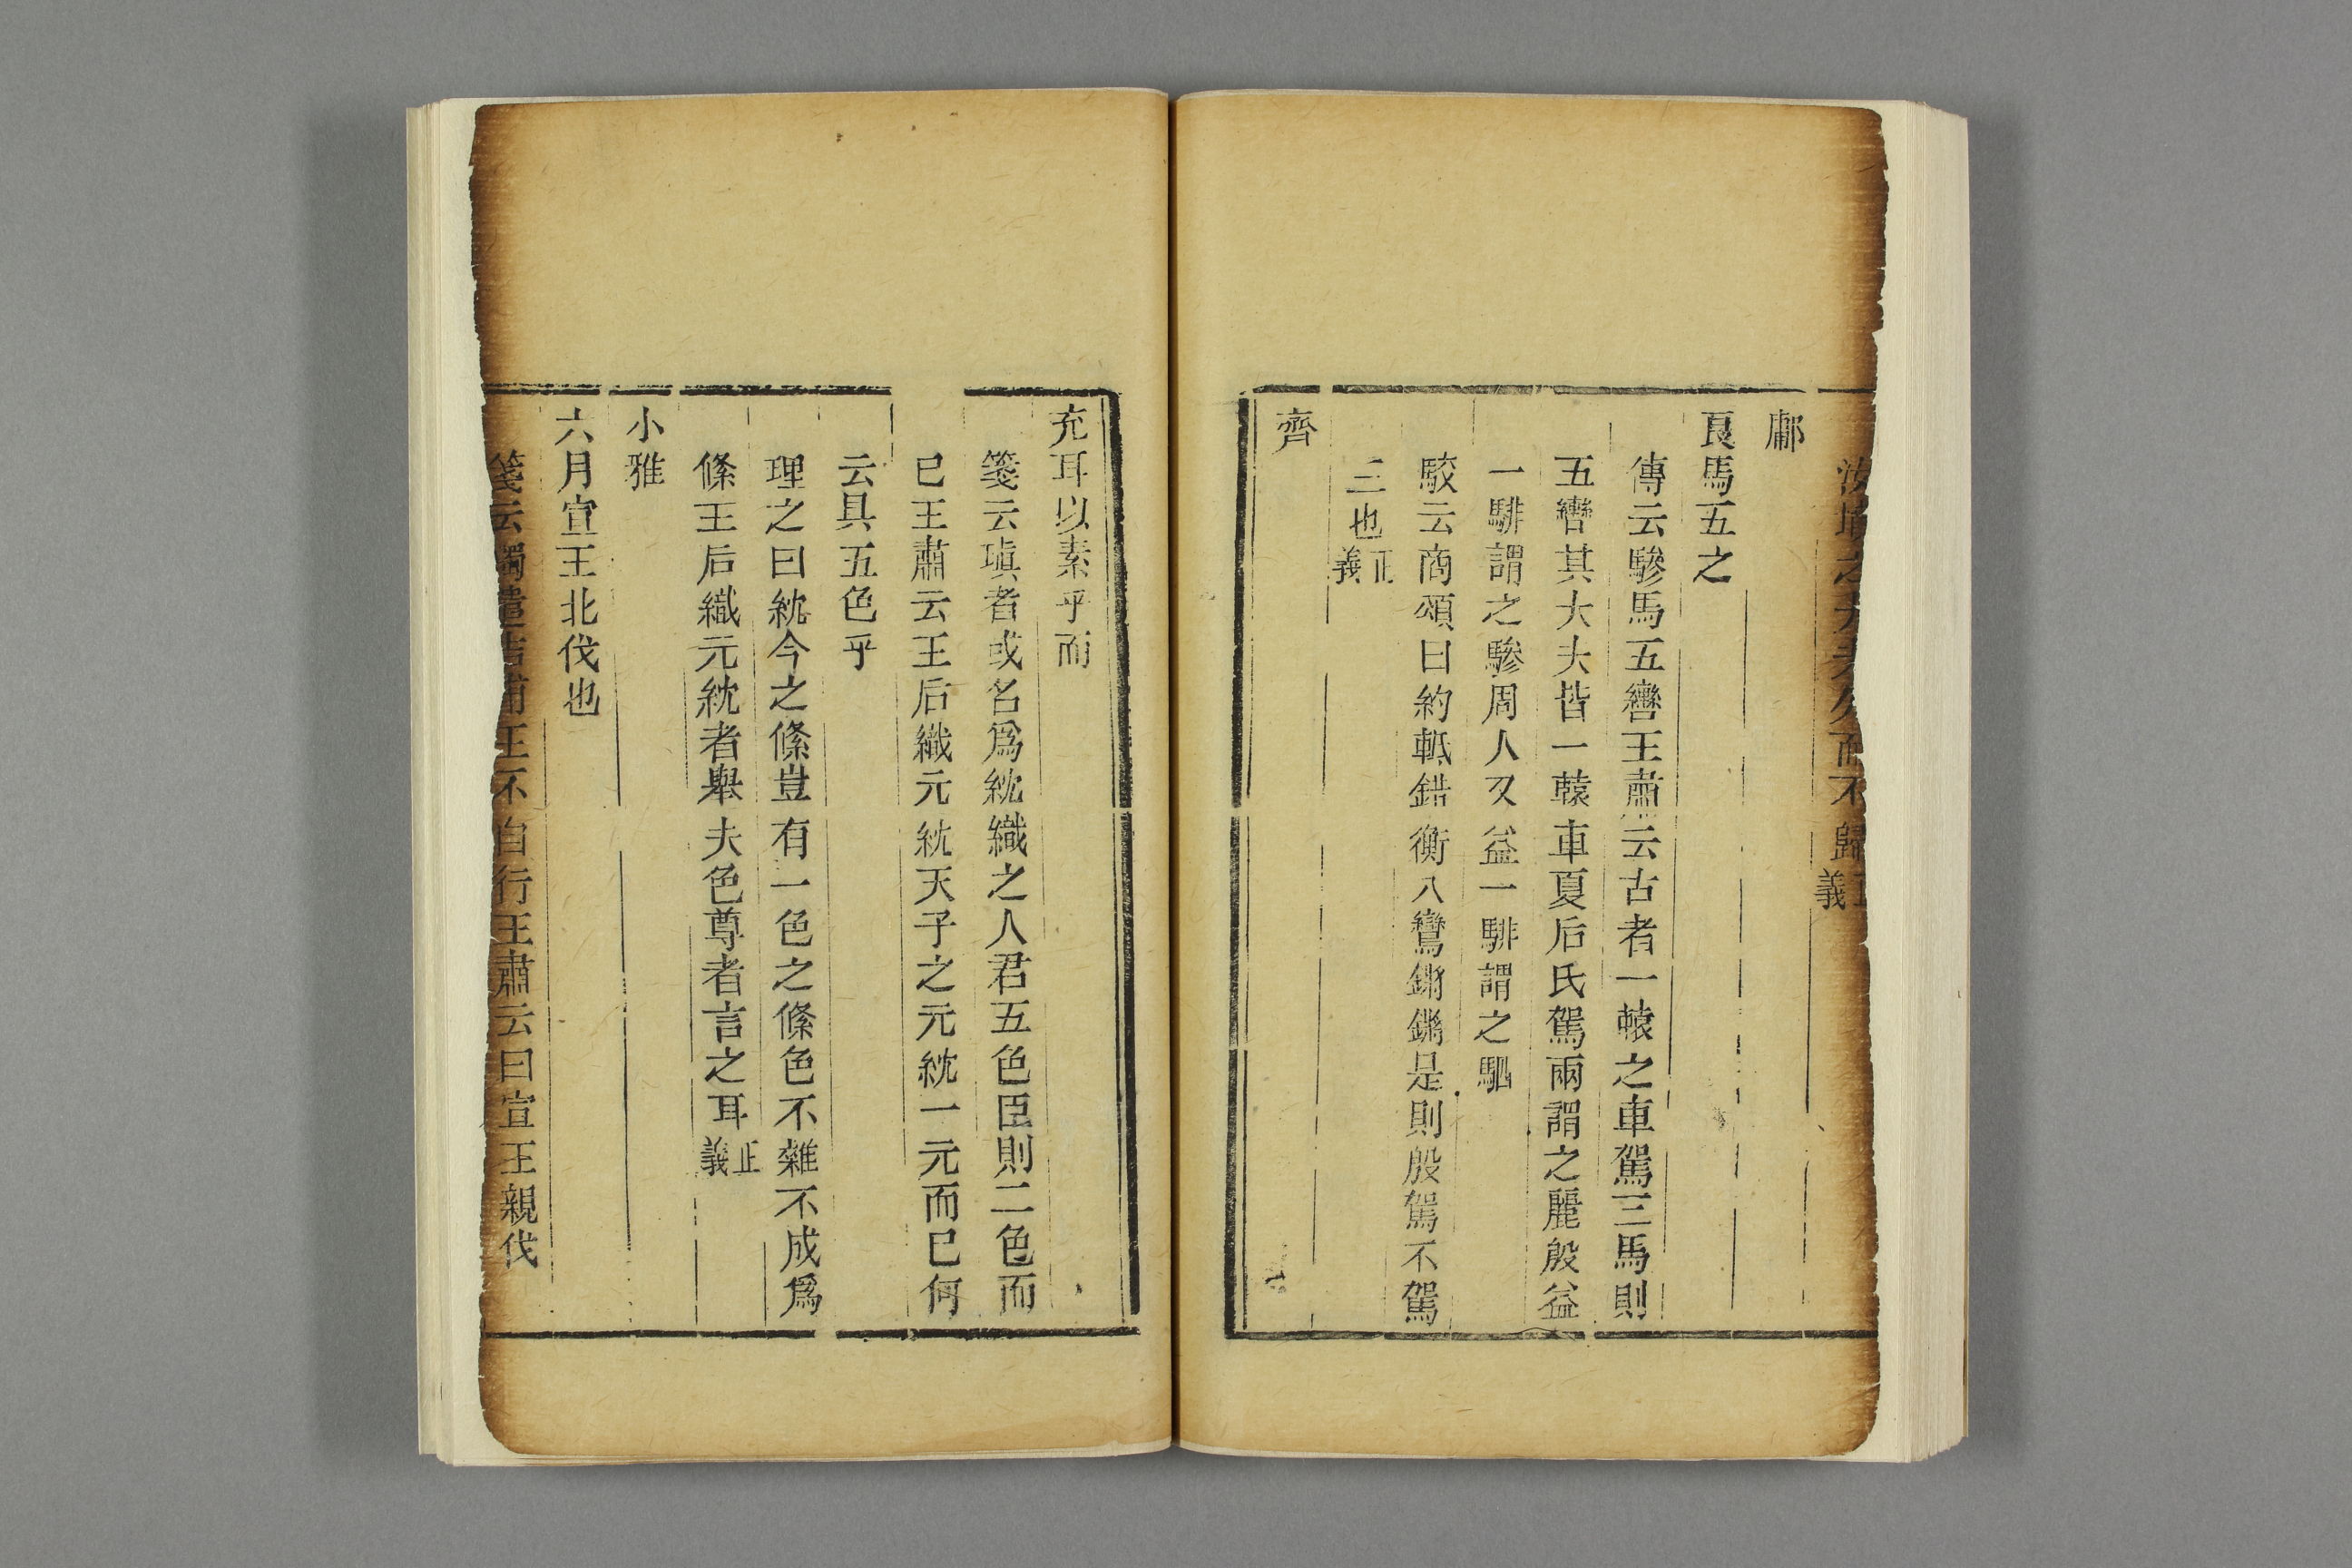 汝墳之
不歸正義
鄘
良馬五之
傳云驂馬五轡王肅云古者一轅之車駕三馬則
五轡其大夫皆一轅車夏后氏駕兩謂之麗殷益
一騑謂之驂周人又益一騑謂之駟
駮云商頌曰約軝錯衡八鸞鏘鏘是則殷駕不駕
三也正義
齊
充耳以素乎而
箋云瑱者或名爲紞織之人君五色臣則二色而
已王肅云王后織元紞天子之元紞一元而已何
云具五色乎
理之曰紞今之絛豈有一色之絛色不雜不成爲
絛王后織元紞者舉夫色尊者言之耳正義
小雅
六月宣王北伐也
箋云獨遣吉甫王不自行王肅云曰宣王親伐